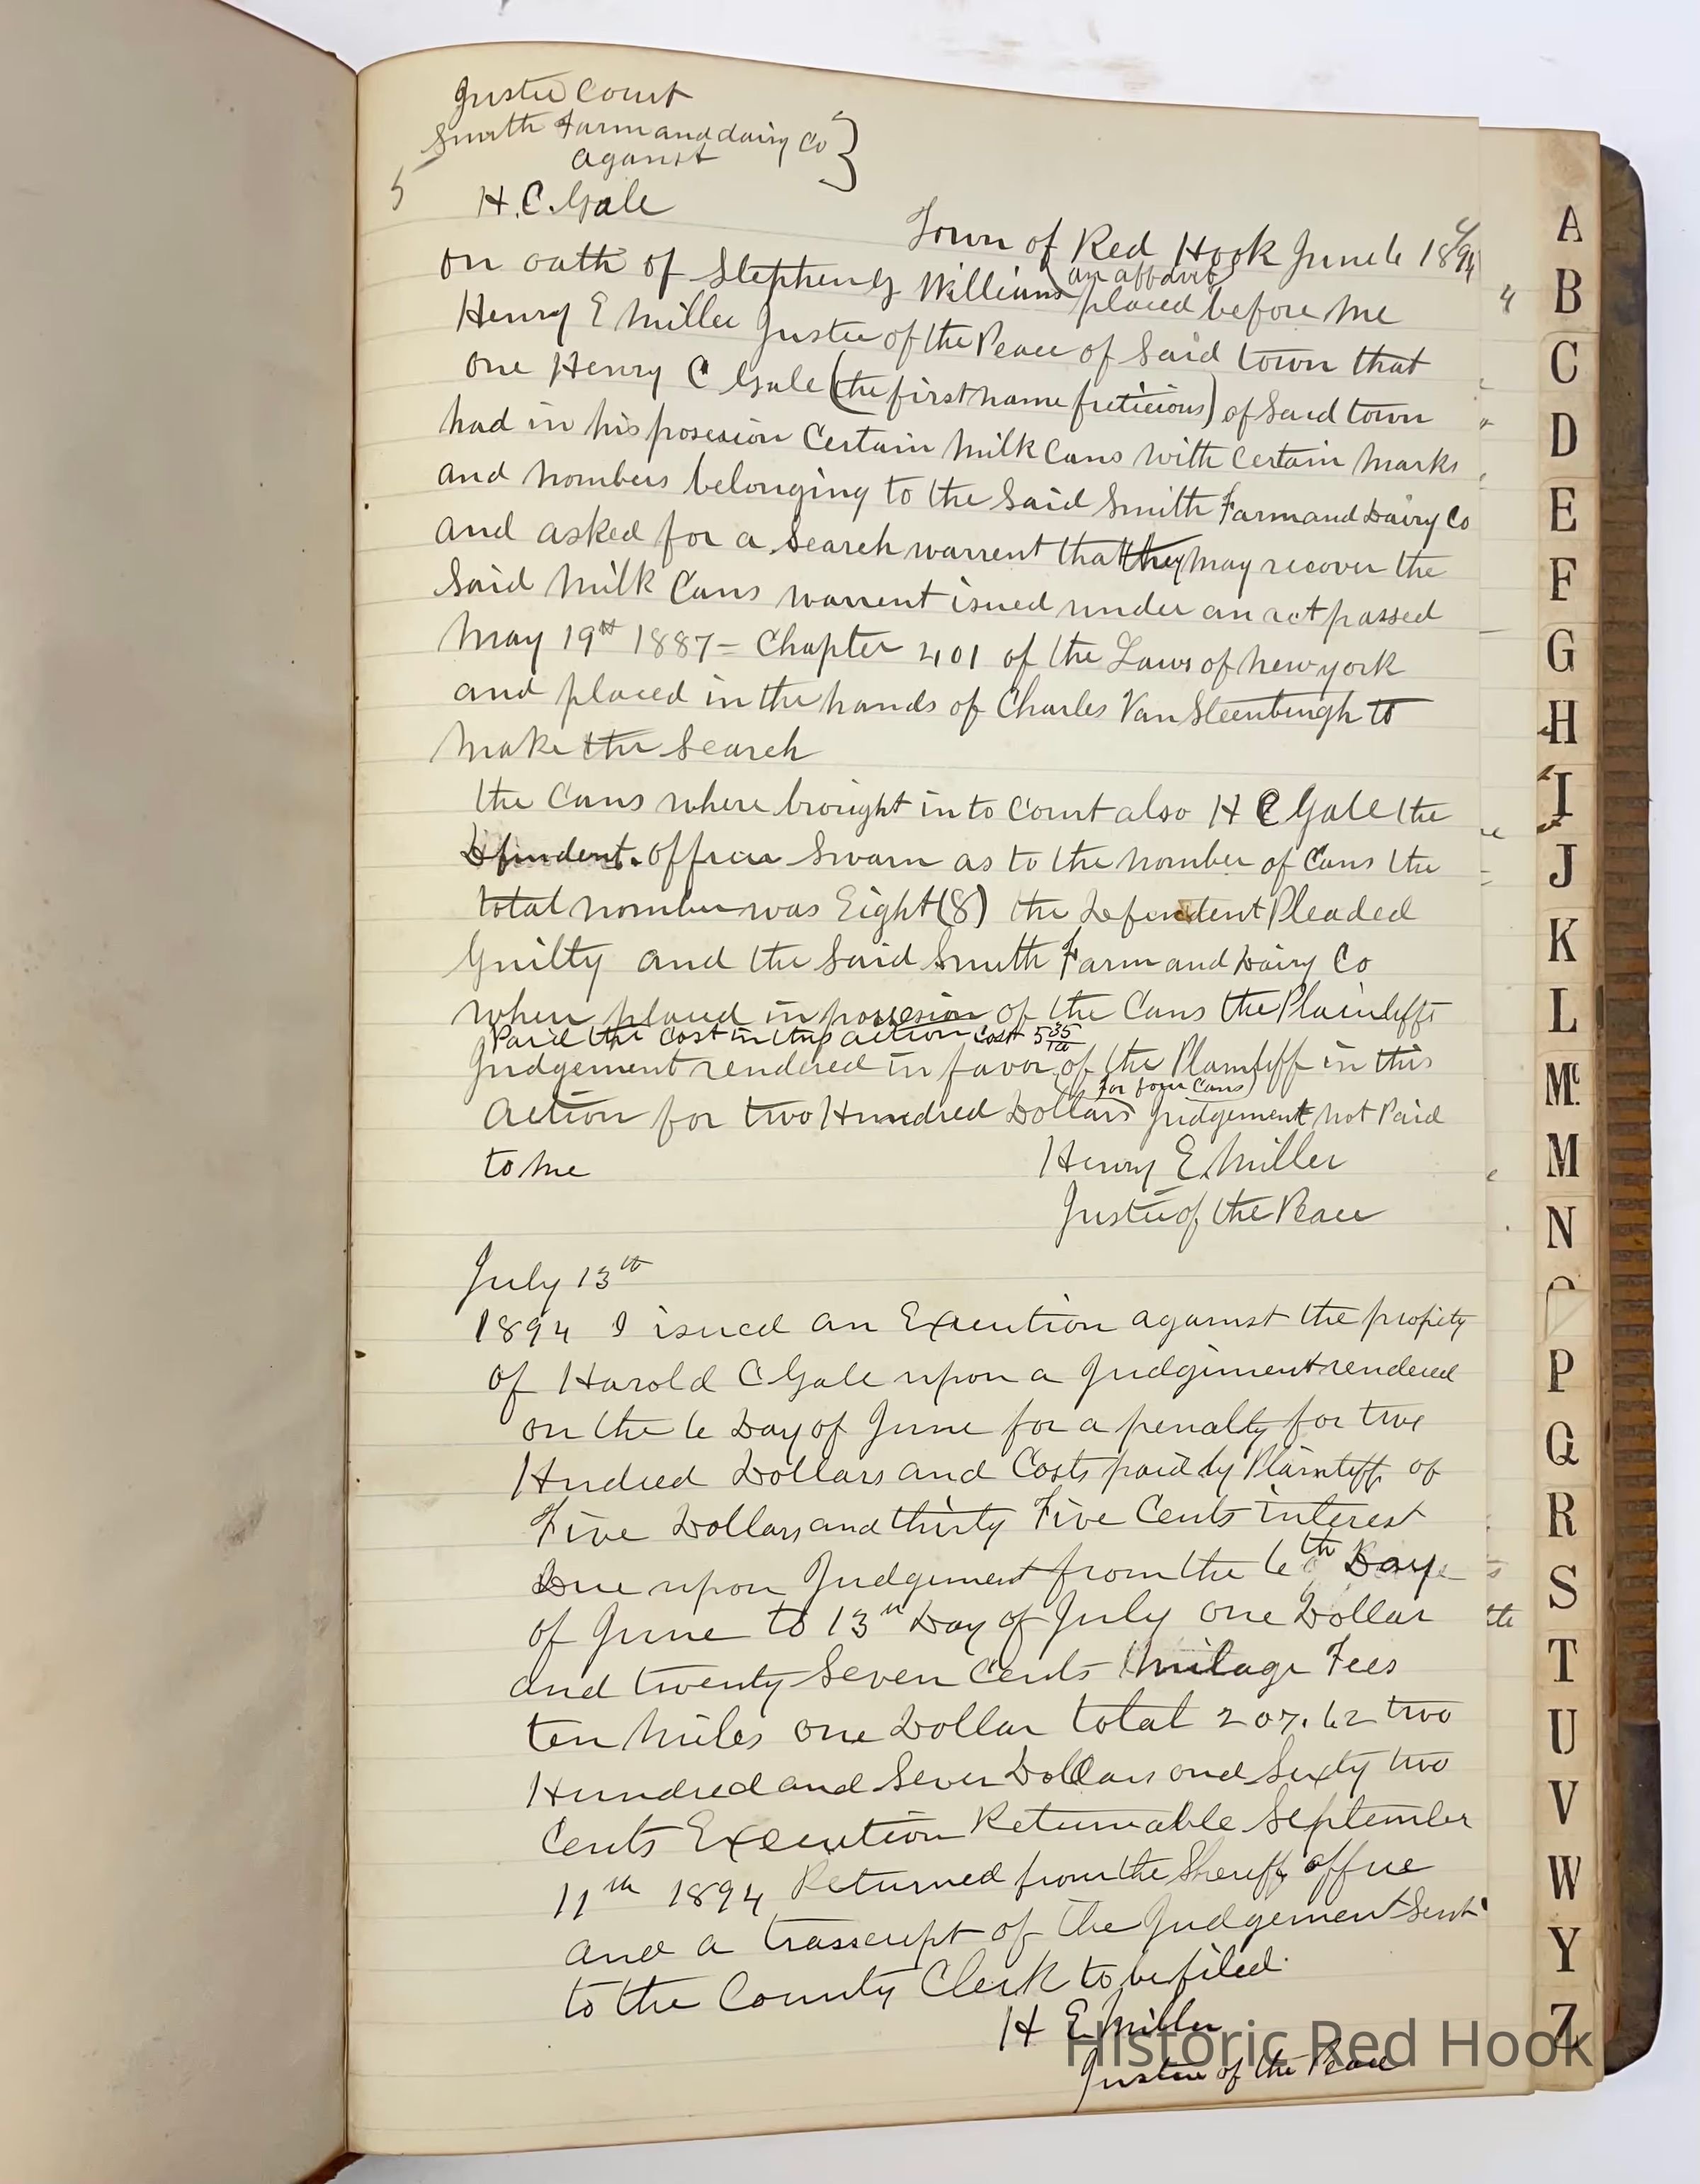 Justice Court
Smith Farm and dairy Co }
against
5
H. C. Gale
Town of Red Hook June 6 1894
on oath of Stephen G Williams (an affidavit)
placed before me
Henry E Miller Justice of the Peace of Said town that
one Henry C Gale (the first name ficticious) of Said town
had in his posession Certain Milk Cans with Certain Marks
and nombers belonging to the Said Smith Farm and Dairy Co
and asked for a Search warrent that they may recover the
Said Milk Cans warrent isued under an act passed
May 19th 1887 = Chapter 401 of the Laws of new york
and placed in the hands of Charles Van Steenburgh to
make the Search
the Cans where brought in to Court also H C Gale the
Defendent. officer Sworn as to the nomber of Cans the
total nomber was Eight (8) the Defendent Pleaded
Guilty and the Said Smith Farm and Dairy Co
when placed in possesion of the Cans the Plaintiffs
Paid the Cost in this action Cost 5 35/100
Judgement rendered in favor of the Plaintiff in this
(for four Cans)
action for two Hundred Dollars Judgement not Paid
to me
Henry E. Miller
Justice of the Peace
July 13th
1894 I isued an Execution against the propety
of Harold C Gale upon a Judgement rendered
on the 6 Day of June for a penalty for two
Hundred Dollars and Costs paid by Plaintiff of
Five Dollars and thirty Five Cents interest
Due upon Judgement from the 6th Day
of June to 13th Day of July one Dollar
and twenty Seven Cents Milage Fees
ten Miles one Dollar total 207.62 two
Hundred and Seven Dollars and Sixty two
Cents Execution Returnable September
11th 1894 Returned from the Sheriff office
and a trasscript of the Judgement Sent
to the County Clerk to be filed.
H E Miller
Justice of the Peace
A
B
C
D
E
F
G
H
I
J
K
L
Mc.
M
N
P
Q
R
S
T
U
V
W
Y
Z
Historic Red Hook